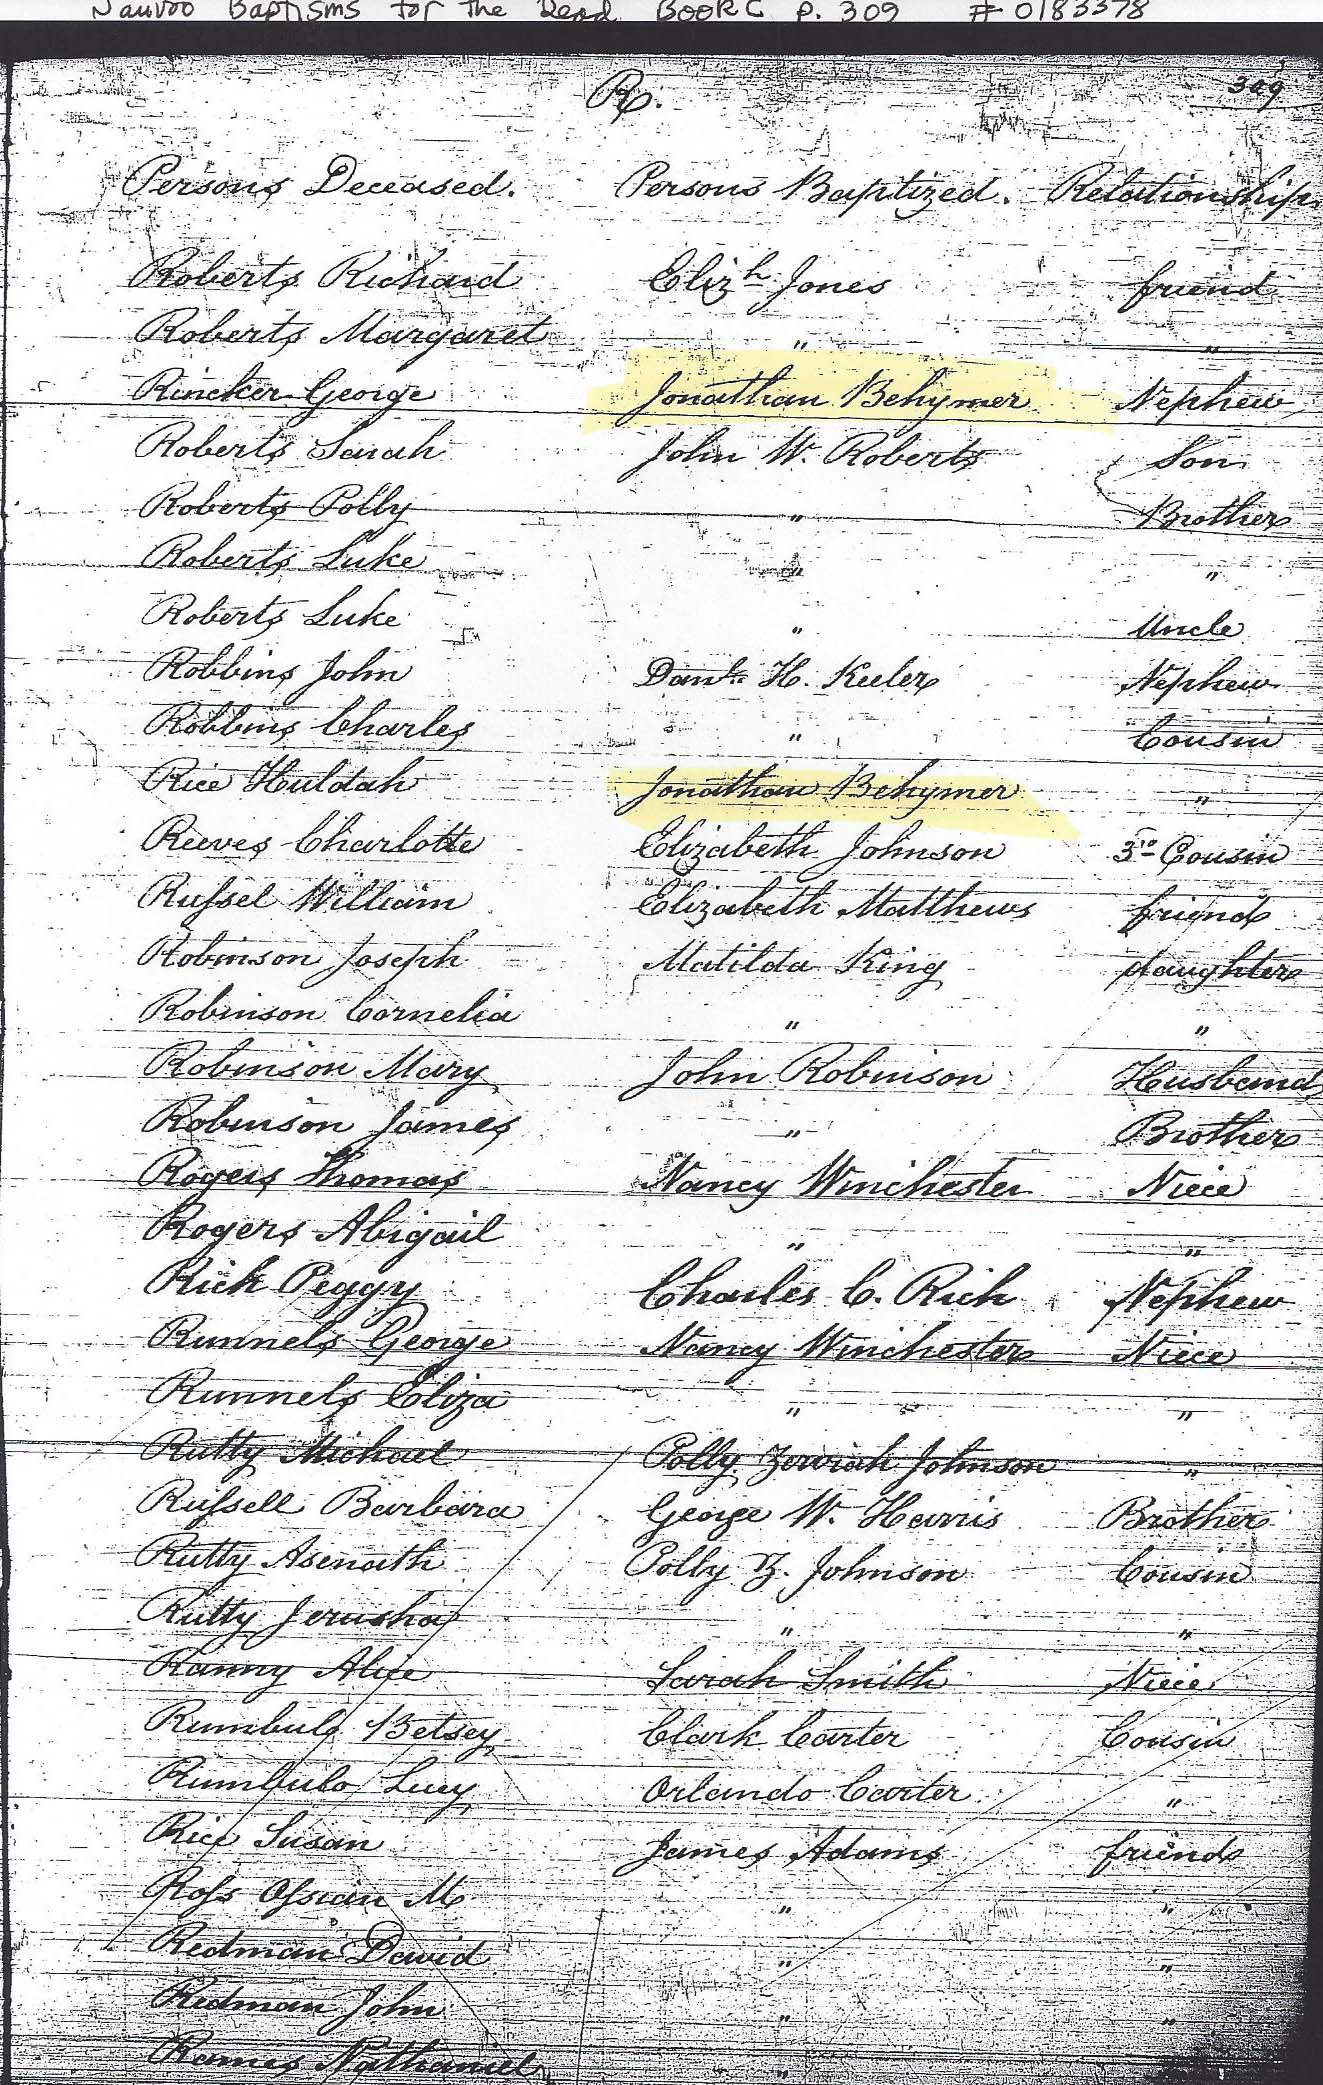 Nauvoo Baptisms for the Dead BOOK C p. 309 # 0183378
R. 309
Persons Deceased. Persons Baptized. Relationship
Roberts Richard Elizh Jones friend
Roberts Margaret " "
Rincker George Jonathan Behymer Nephew
Roberts Sarah John W. Roberts Son
Roberts Polly " Brother
Roberts Luke " "
Roberts Luke " Uncle
Robbins John Danl. H. Keeler Nephew
Robbins Charles " Cousin
Rice Huldah Jonathan Behymer "
Reeves Charlotte Elizabeth Johnson 3rd Cousin
Russel William Elizabeth Matthews friend
Robinson Joseph Matilda King daughter
Robinson Cornelia " "
Robinson Mary John Robinson Husband
Robinson James " Brother
Rogers Thomas Nancy Winchester Niece
Rogers Abigail " "
Rich Peggy Charles C. Rich Nephew
Runnels George Nancy Winchester Niece
Runnels Eliza " "
Rutty Michael Polly Zeruiah Johnson "
Russell Barbara George W. Harris Brother
Rutty Asenath Polly Z. Johnson Cousin
Rutty Jerusha " "
Ranny Alice Sarah Smith Niece
Rumbulo Betsey Clark Carter Cousin
Rumbulo Lucy Orlando Carter "
Rice Susan James Adams friend
Ross Ossian M " "
Redman David " "
Redman John " "
Rames Nathaniel "